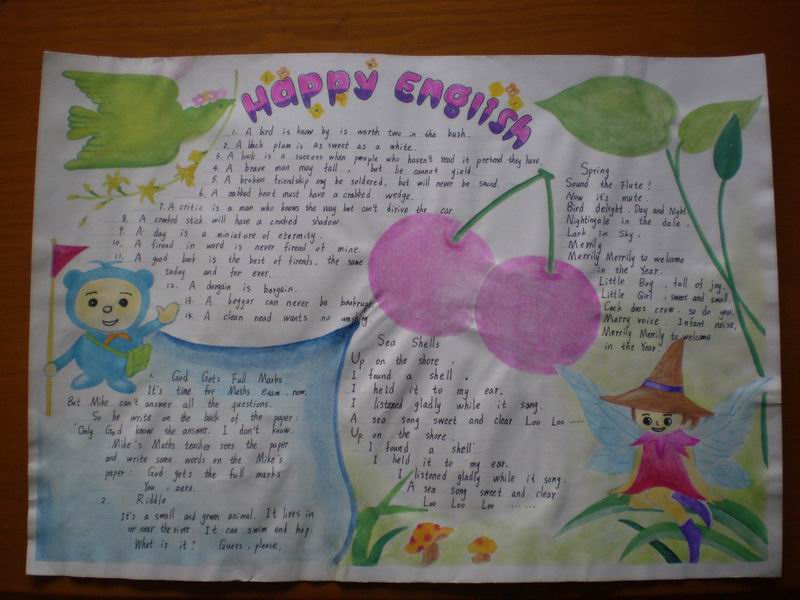 Happy English
1. A bird is know by is worth two in the bush.
2. A black plum is as sweet as a white.
3. A book is a success when people who haven't read it pretend they have.
4. A brave man may fall, but he cannot yield.
5. A broken friendship may be soldered, but will never be sound.
6. A crabbed knot must have a crabbed wedge.
7. A critic is a man who knows the way but can't dirive the car.
8. A crooked stick will have a crooked shadow.
9. A day is a miniature of etermity.
10. A firend in word is never firend of mine.
11. A good book is the best of firends, the same
today and for ever.
12. A bargain is bargain.
13. A beggar can never be bankrupt.
14. A clean head wants no washing
Spring
Sound the Flute!
Now it's mute.
Bird delight. Day and Night.
Nightingale in the dale,
Lark in Sky.
Merrily
Merrily Merrily to welcome
in the Year.
Little Boy, full of joy.
Little Girl, sweet and small.
Cock does crow. so do you.
Merry voice. Infant noise.
Merrily Merrily to welcome
in the Year!
Sea Shells
Up on the shore,
I found a shell.
I held it to my ear.
I listened gladly while it sang.
A sea song sweet and clear Loo Loo ......
Up on the shore.
I found a shell
I held it to my ear.
I listened gladly while it song.
A sea song sweet and clear
Loo Loo Loo ......
1. God Gets Full Marks
It's time for Maths exam now.
But Mike can't answer all the questions.
So he write on the back of the paper:
"Only God know the answer. I don't know.
Mike's Maths teacher sees the paper
and write some words on the Mike's
paper: God gets the full marks
You, zero.
2. Riddle
It's a small and green animal. It lives in
or near the river. It can swim and hop.
What is it? Guess, please.